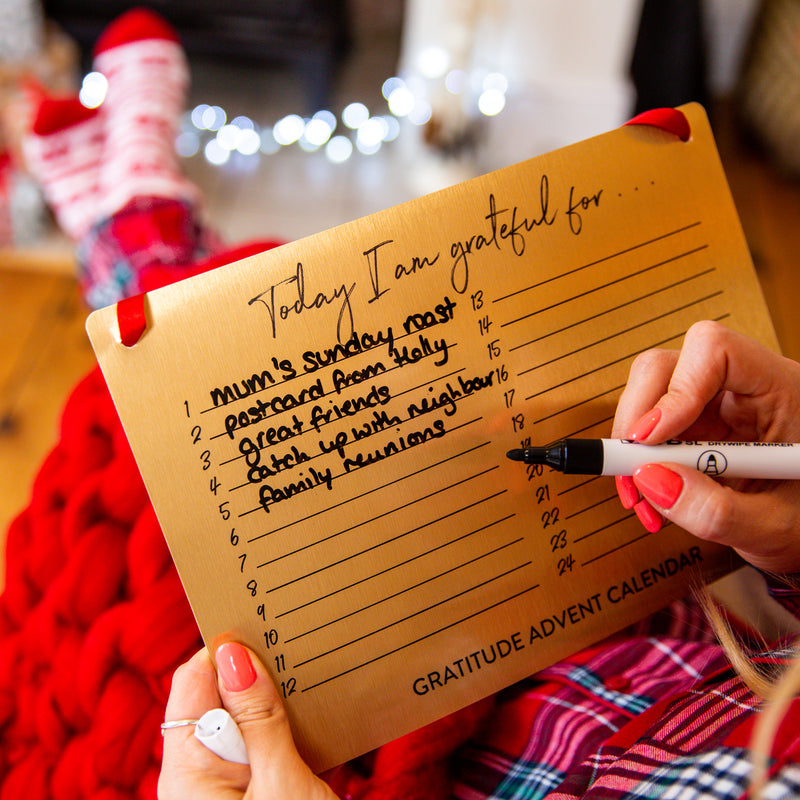 Today I am grateful for ...
1 mum's sunday roast
2 postcard from Holly
3 great friends
4 catch up with neighbour
5 family reunions
6
7
8
9
10
11
12
13
14
15
16
17
18
19
20
21
22
23
24
GRATITUDE ADVENT CALENDAR
DRYWIPE MARKER